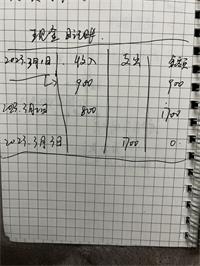 现金日记账
2023.3月1日 收入 支出 余额
900 900
2023.3月2日 800 1700
2023.3月3日 1700 0